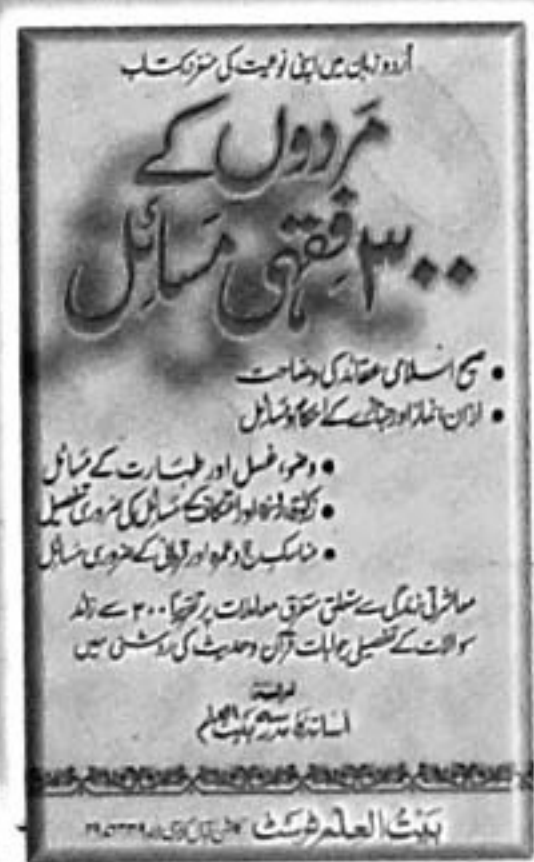 اُردو زبان میں اپنی نوعیت کی منفرد کتاب
مَردوں کے
۳۰۰ فِقہی مَسائِل
• صحیح اسلامی عقائد کی وضاحت
• اذان، نماز اور جنازے کے احکام و مسائل
• وضو، غسل اور طہارت کے مسائل
• زکوٰۃ، روزہ اور اعتکاف کے مسائل کی ضروری تفصیل
• مناسک حج و عمرہ اور قربانی کے ضروری مسائل
معاشرتی زندگی سے متعلق متفرق معاملات پر تقریباً ۳۰۰ سے زائد
سوالات کے تفصیلی جوابات قرآن و حدیث کی روشنی میں
اساتذہ مدرسہ بیت العلم
بیتُ العِلم ٹرسٹ